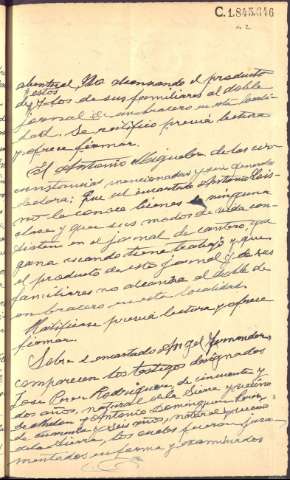 C.1.845.646
No alcanzando el producto
de estos y los de sus familiares al doble
jornal de un bracero en esta locali
dad. Se ratificó previa lectura
y ofrece firmar.
El Antonio Miguelez de las cir-
cunstancias mencionadas y sin generales
Que al encartado Antonio
no le conoce bienes de ninguna
clase y que sus modos de vida con
sisten en el jornal de cantero, que
gana cuando tiene trabajo y que
el producto de este jornal y de sus
familiares no alcanza al doble de
un bracero en esta localidad.
Ratifícase previa lectura y ofrece
firmar.
Sobre el encartado Angel Fernandez,
comparecen los testigos designados
José Perez Rodriguez, de cincuenta y
dos años, natural de la Sierra y vecino
de y Antonio Dominguez Perez,
de cuarenta y seis años, natural y vecino
de la Sierra, los cuales fueron jura-
mentados en forma y examinados